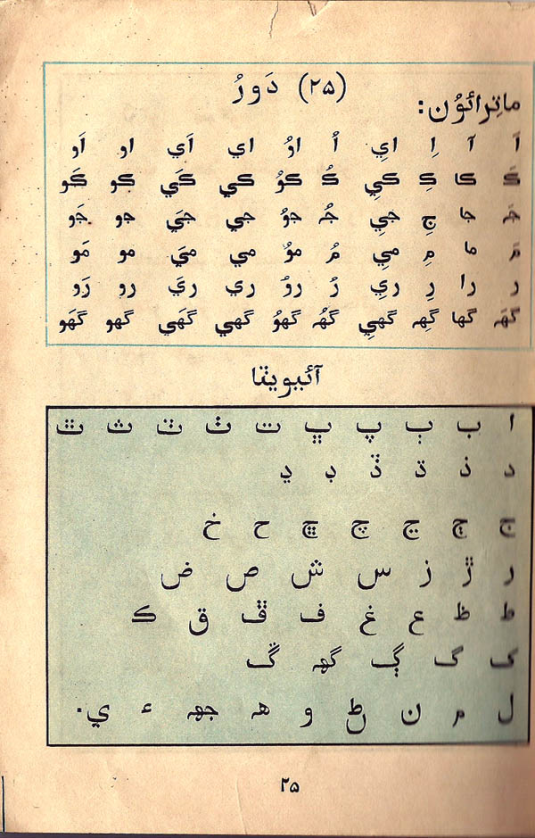 (۲۵) دَورُ
ماتِرائوُن:
اَ آ اِ اِي اُ اوُ اي اَي او اَو
ڪَ ڪا ڪِ ڪِي ڪُ ڪوُ ڪي ڪَي ڪو ڪَو
جَ جا جِ جِي جُ جوُ جي جَي جو جَو
مَ ما مِ مِي مُ موُ مي مَي مو مَو
رَ را رِ رِي رُ روُ ري رَي رو رَو
گهَه گها گهِه گهِي گهُه گهوُ گهي گهَي گهو گهَو
آئيويٽا
ا ب ٻ پ ڀ ت ٺ ٽ ث ٿ
د ذ ڌ ڏ ڊ ڍ
ج ڄ ڃ چ ڇ ح خ
ر ڙ ز س ش ص ض
ط ظ ع غ ف ڦ ق ڪ
ک گ ڳ گهه ڱ
ل م ن ڻ و ه جهه ء ي.
۲۵